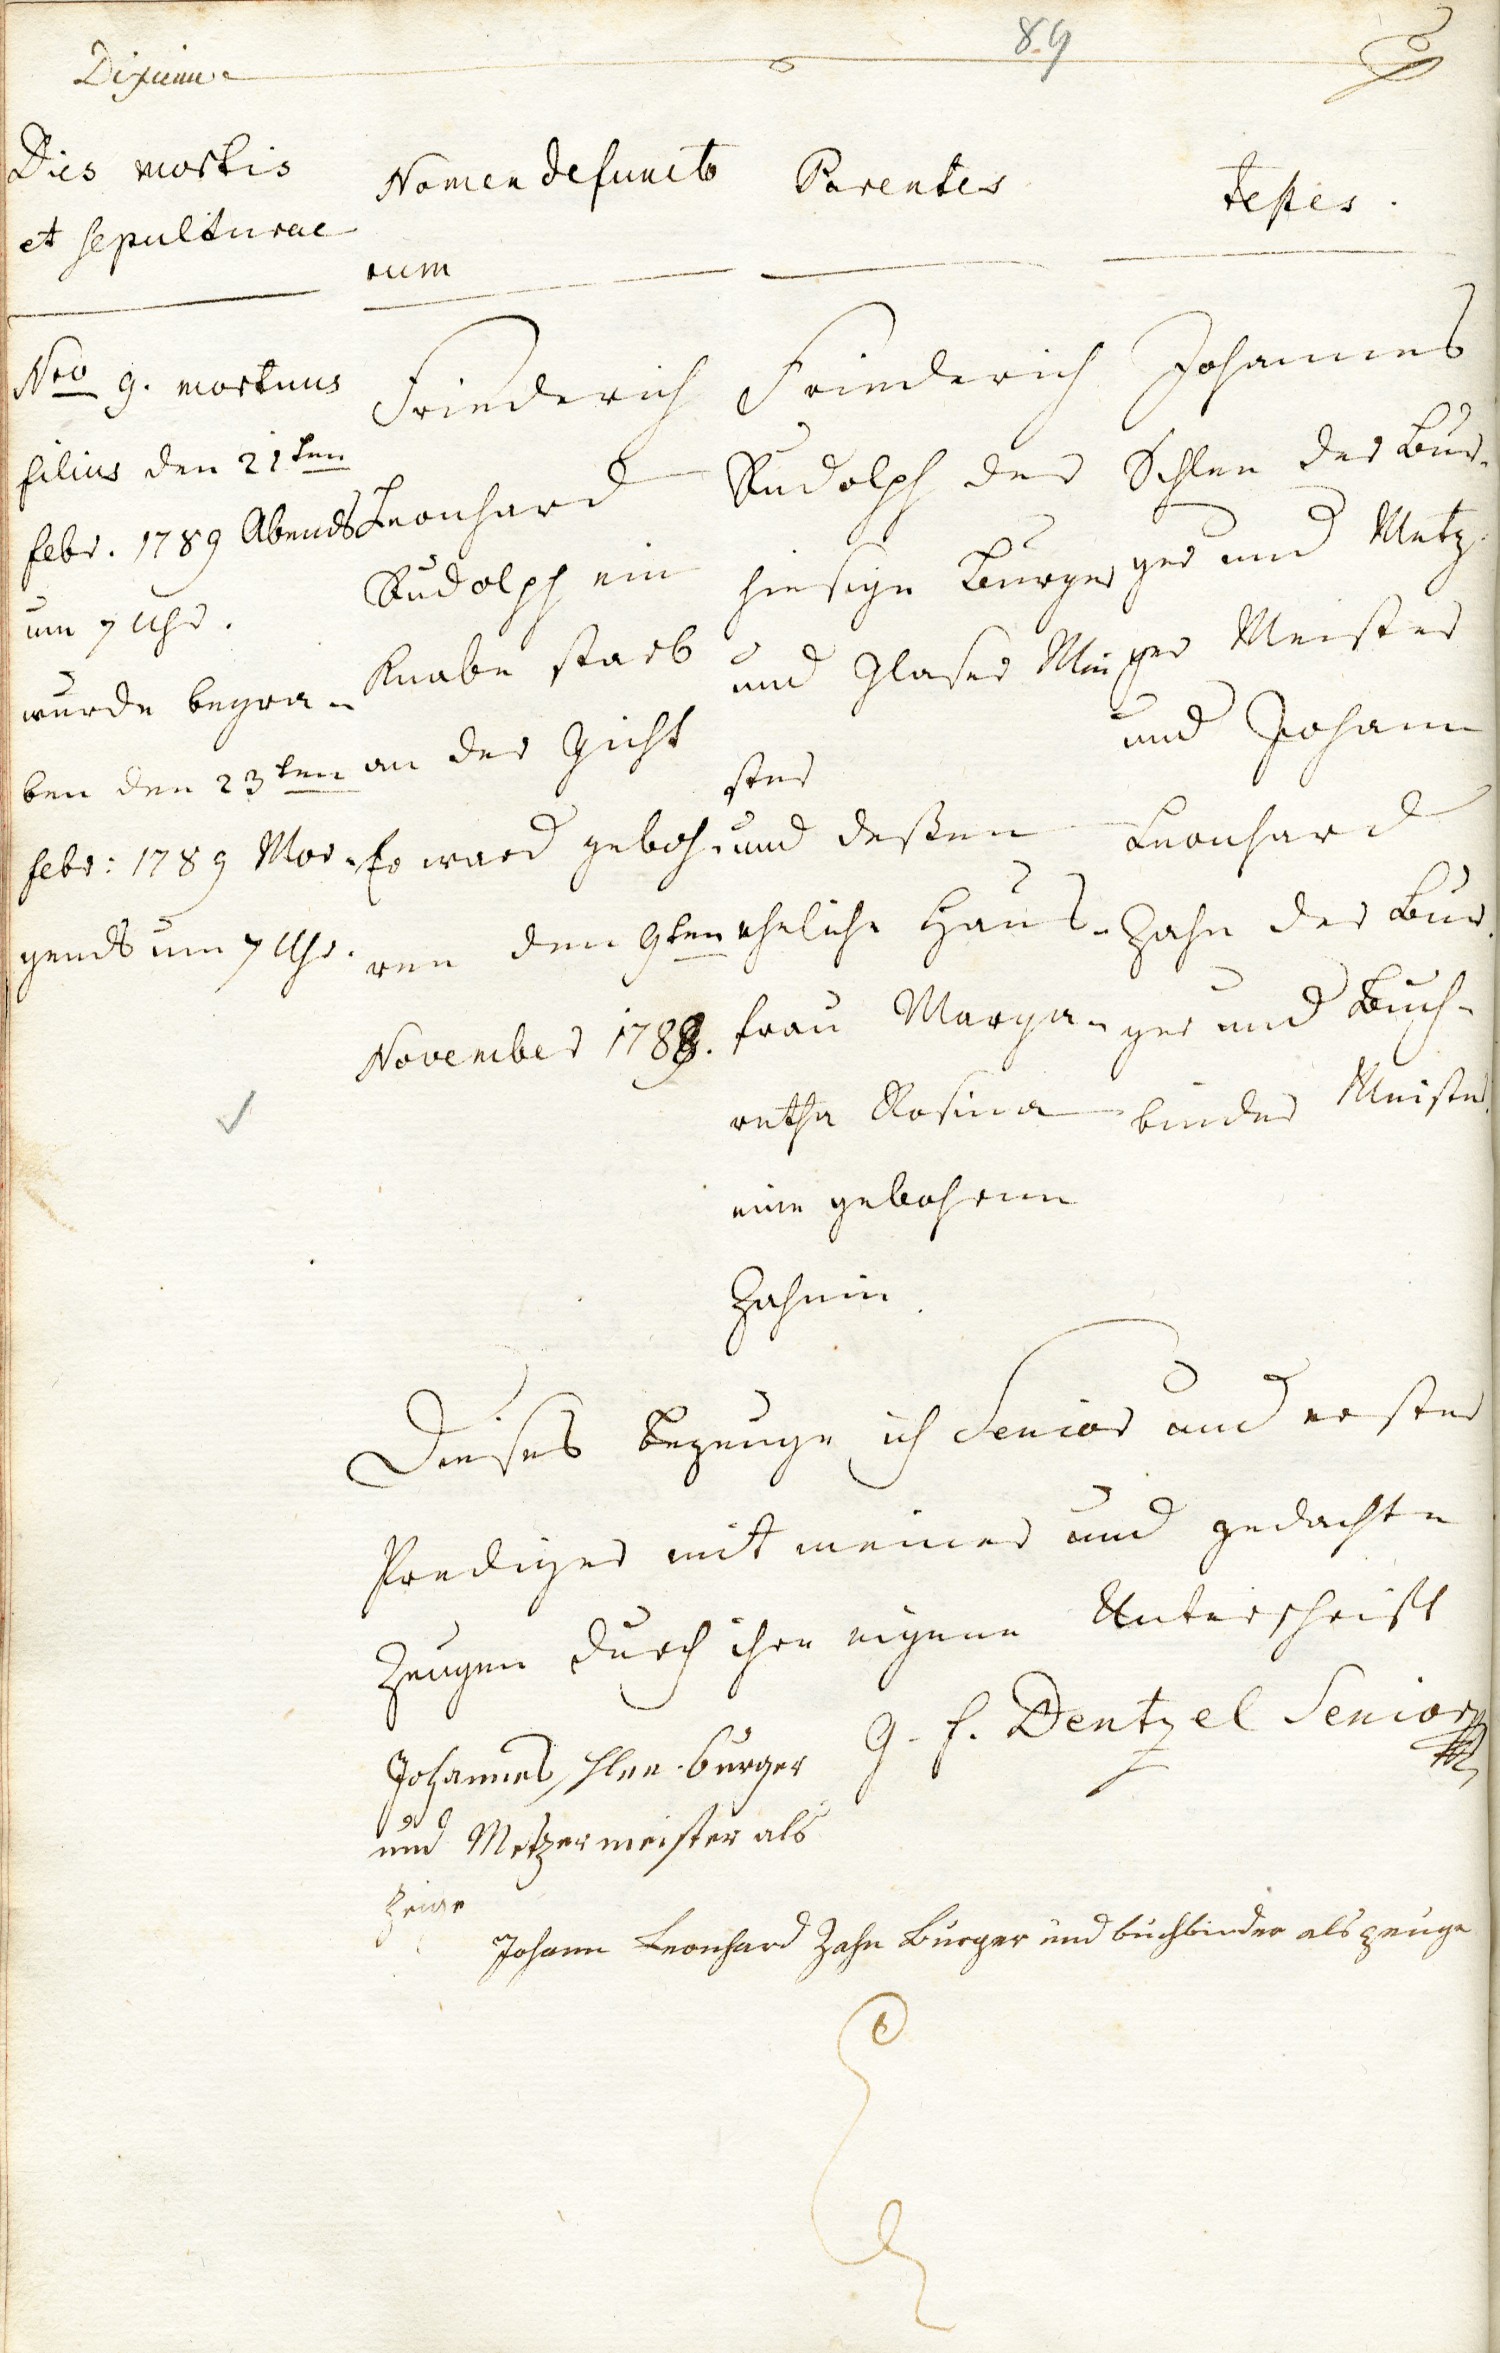 89
Dies mortis
et sepulturae
Nomen defuncto
rum
Parentes
testes.
Nro 9. mortuus
filius den 21ten
febr. 1789 Abends
um 7 Uhr.
wurde begra-
ben den 23ten
febr: 1789 Mor-
gends um 7 Uhr.
Friederich
Leonhard
Rudolph ein
Knabe starb
an der Gicht
Er ward geboh-
ren den 9ten
November 1788.
Friederich
Rudolph der
hiesige Burger
und Glaser Mei
ster
und deßen
eheliche Haus-
frau Marga-
retha Rosina
eine gebohrne
Zahnin
Johannes
Schlee der Bur-
ger und Metz-
ger Meister
und Johann
Leonhard
Zahn der Bur-
ger und Buch-
binder Meister.
Dieses bezeuge ich Senior und erster
Prediger mit meiner und gedachte
Zeugen durch ihre eigene Unterschrift
G. F. Dentzel Senior
Johannes burger
und Metzermeister als
Zeuge
Johann Leonhard Zahn Burger und buchbinder als zeuge